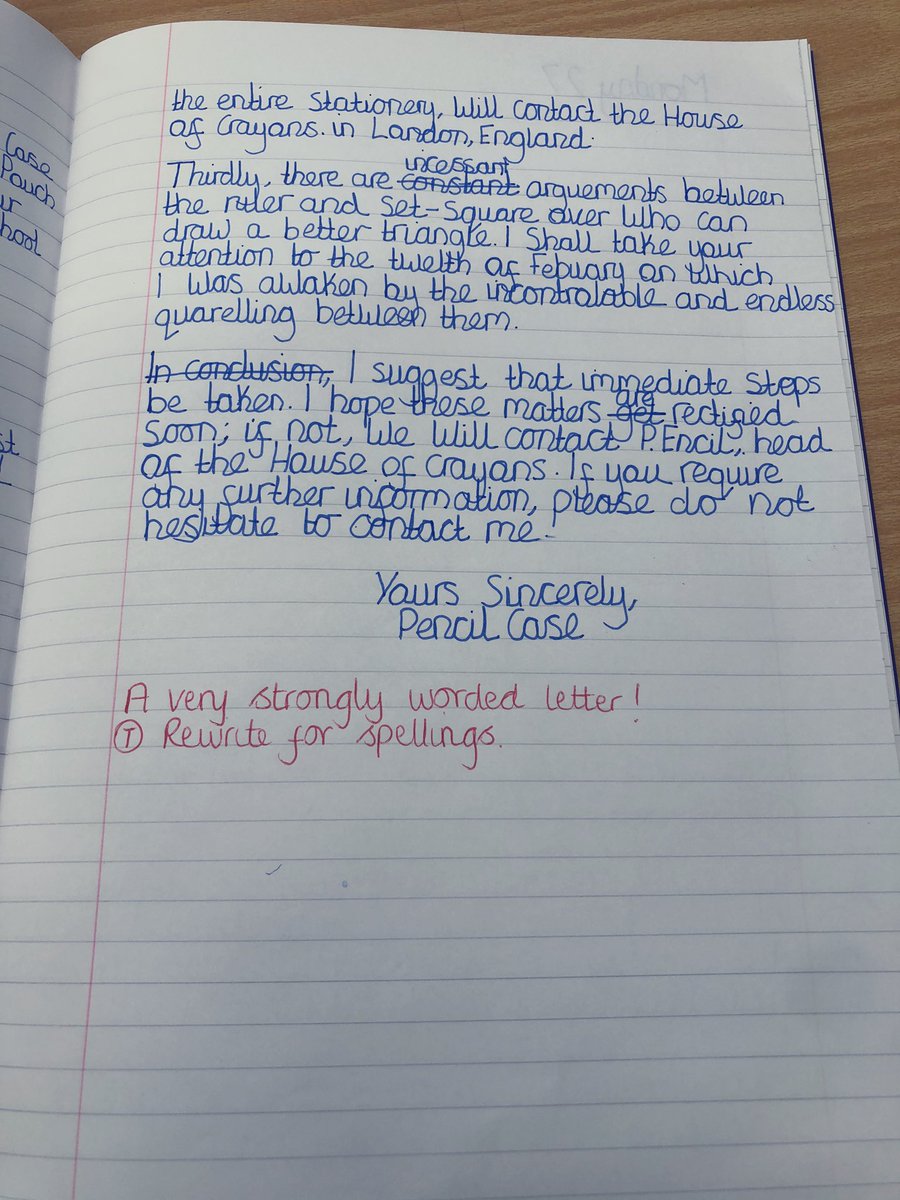 Case
Pouch
the entire stationery, will contact the House
of Crayons. in London, England.
incessant
Thirdly, there are constant arguements between
the ruler and set-square over who can
draw a better triangle. I shall take your
attention to the twelth of Febuary on which
I was awaken by the incontrolable and endless
quarelling between them.
In conclusion, I suggest that immediate steps
are
be taken. I hope these matters get rectified
soon; if not, we will contact P.Encil, head
of the House of Crayons. If you require
any further information, please do not
hesitate to contact me.
Yours Sincerely,
Pencil Case
A very strongly worded letter!
T Rewrite for spellings.